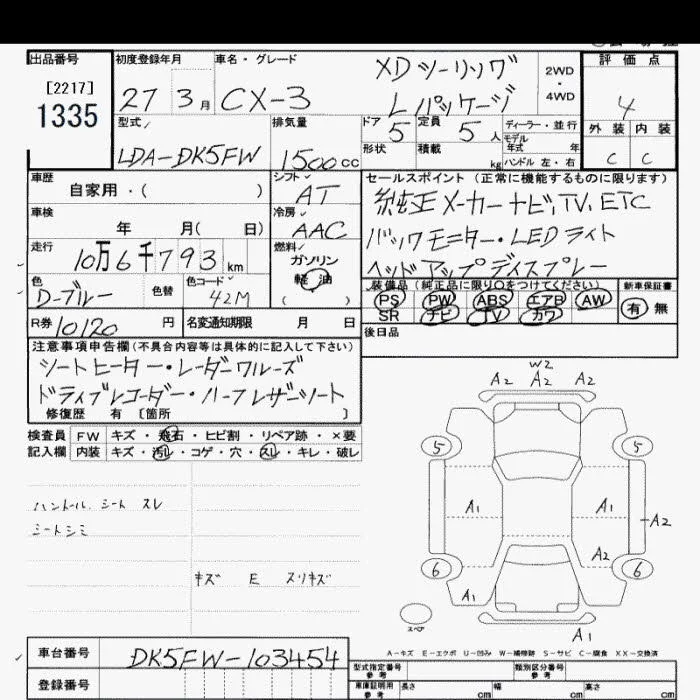 出品番号 初度登録年月 車名・グレード XDツーリング 2WD 評価点
[2217] 27 3月 CX-3 Lパッケージ ・ 4WD 4
1335 型式 排気量 ドア 5 定員 5人 ディーラー・並行 外装 内装
LDA-DK5FW 1500cc 形状 積載 kg モデル年式 年 ハンドル 左・右 C C
車歴 シフト セールスポイント (正常に機能するものに限ります)
自家用・( ) AT 純正メーカーナビ、TV、ETC
車検 冷房 バックモニター・LEDライト
年 月( 日) AAC ヘッドアップディスプレー
走行 燃料
10万6千793km ガソリン
色 色替 色コード 軽油
D-ブルー 42M ( )
装備品(純正品に限り○をつけてください) 新車保証書
PS PW ABS エアB AW 有 無
SR ナビ TV カワ
R券 10120 円 名変通知期限 月 日 後日品
注意事項申告欄(不具合内容等は具体的に記入して下さい)
シートヒーター・レーダークルーズ
ドライブレコーダー・ハーフレザーシート
修復歴 有 [箇所 ]
検査員 FW キズ・飛石・ヒビ割・リペア跡・×要
記入欄 内装 キズ・汚レ・コゲ・穴・スレ・キレ・破レ
ハンドル、シート スレ
シートシミ
キズ E スリキズ
W2
A2 A2 A2
5 5
A1 A1 A2
A2
6 6
A1
スペア A1
A-キズ E-エクボ U-凹み W-補修跡 S-サビ C-腐食 XX-交換済
車台番号 DK5FW-103454 型式指定番号 参考 類別区分番号 参考
登録番号 車庫証明用 参考 長さ cm 幅 cm 高さ cm